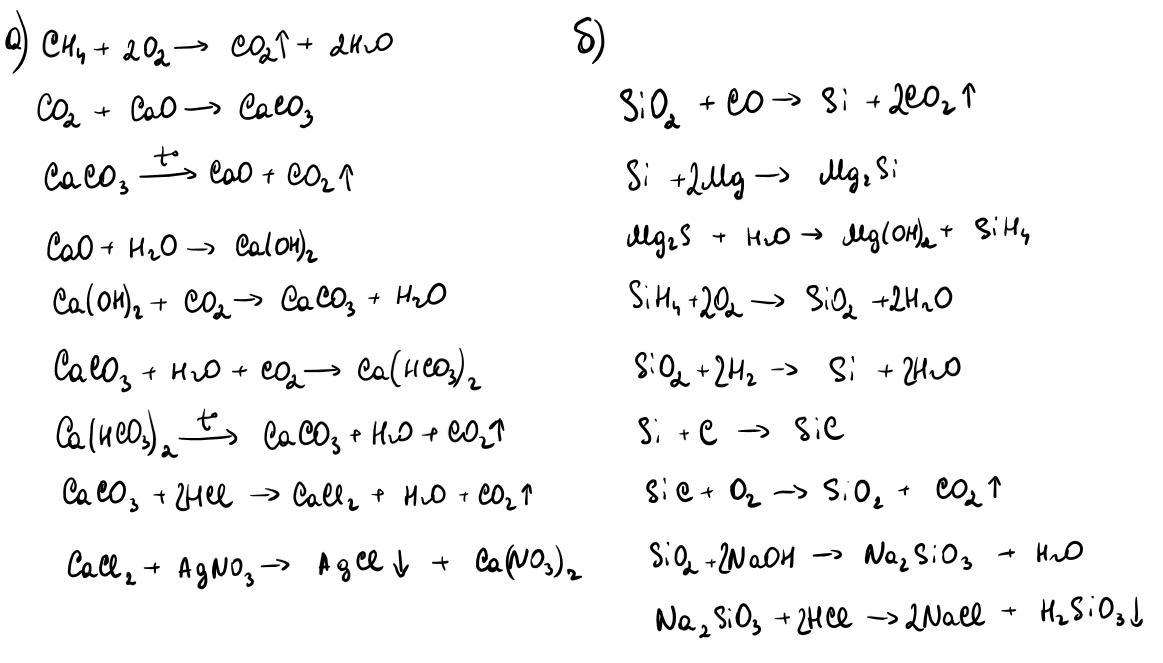 а) CH₄ + 2O₂ → CO₂↑ + 2H₂O
CO₂ + CaO → CaCO₃
CaCO₃ —t°→ CaO + CO₂↑
CaO + H₂O → Ca(OH)₂
Ca(OH)₂ + CO₂ → CaCO₃ + H₂O
CaCO₃ + H₂O + CO₂ → Ca(HCO₃)₂
Ca(HCO₃)₂ —t°→ CaCO₃ + H₂O + CO₂↑
CaCO₃ + 2HCl → CaCl₂ + H₂O + CO₂↑
CaCl₂ + AgNO₃ → AgCl↓ + Ca(NO₃)₂
б)
SiO₂ + CO → Si + 2CO₂↑
Si + 2Mg → Mg₂Si
Mg₂S + H₂O → Mg(OH)₂ + SiH₄
SiH₄ + 2O₂ → SiO₂ + 2H₂O
SiO₂ + 2H₂ → Si + 2H₂O
Si + C → SiC
SiC + O₂ → SiO₂ + CO₂↑
SiO₂ + 2NaOH → Na₂SiO₃ + H₂O
Na₂SiO₃ + 2HCl → 2NaCl + H₂SiO₃↓